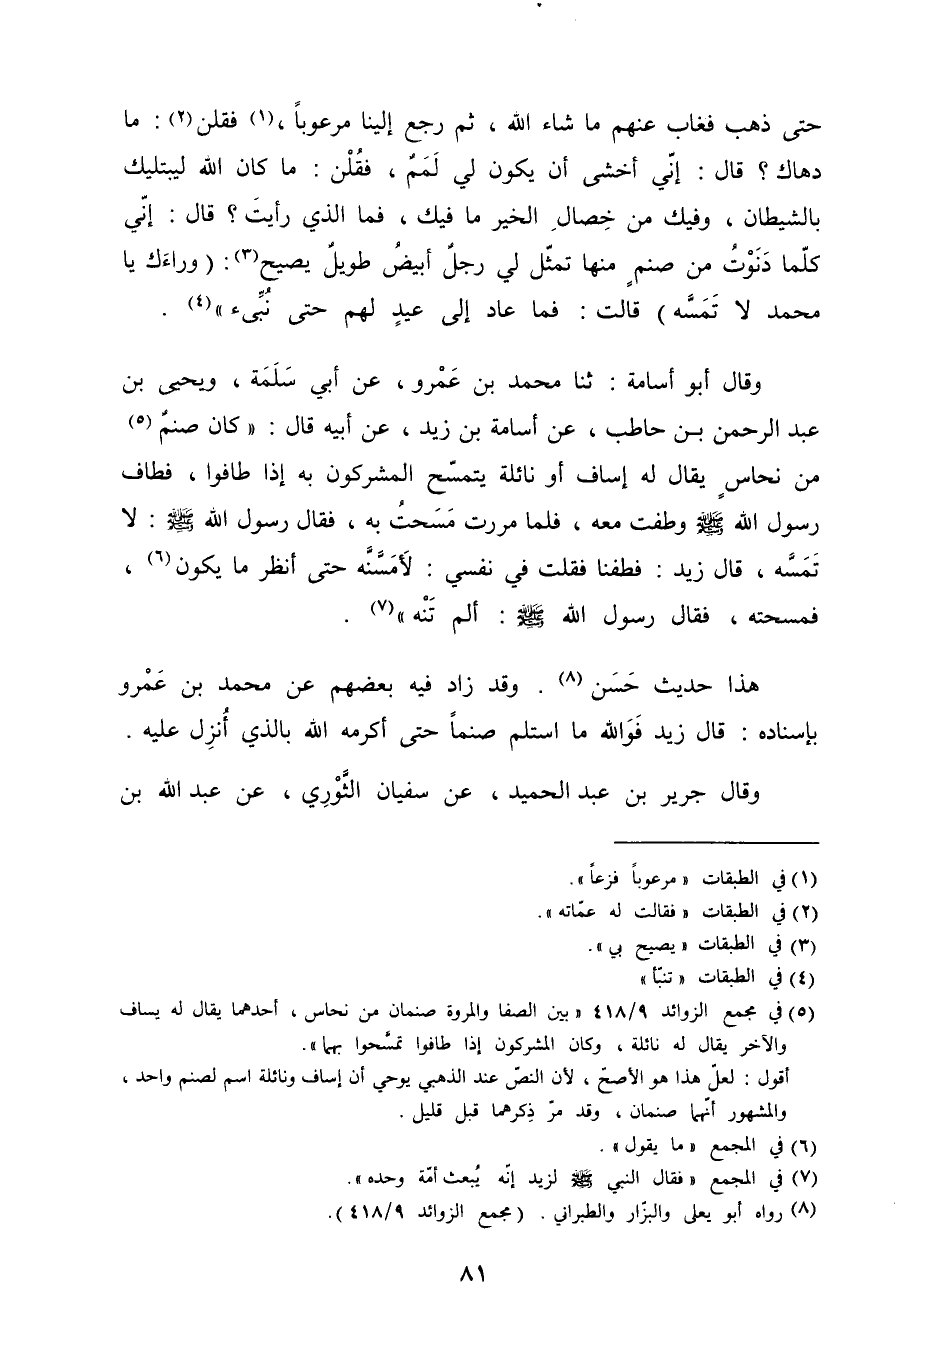 حتى ذهب فغاب عنهم ما شاء الله ، ثم رجع إلينا مرعوباً ،(١) فقلن(٢) : ما
دهاك ؟ قال : إنّي أخشى أن يكون لي لَمَمٌ ، فقُلْن : ما كان الله ليبتليك
بالشيطان ، وفيك من خِصال الخير ما فيك ، فما الذي رأيتَ ؟ قال : إنّي
كلّما دَنَوْتُ من صنمٍ منها تمثّل لي رجلٌ أبيضُ طويلٌ يصيح(٣) : ( وراءَك يا
محمد لا تَمَسَّه ) قالت : فما عاد إلى عيدٍ لهم حتى نُبِّىء »(٤) .
وقال أبو أسامة : ثنا محمد بن عَمْرو ، عن أبي سَلَمَة ، ويحيى بن
عبد الرحمن بـن حاطب ، عن أسامة بن زيد ، عن أبيه قال : « كان صنمٌ (٥)
من نحاسٍ يقال له إساف أو نائلة يتمسّح المشركون به إذا طافوا ، فطاف
رسول الله ﷺ وطفت معه ، فلما مررت مَسَحتُ به ، فقال رسول الله ﷺ : لا
تَمَسَّه ، قال زيد : فطفنا فقلت في نفسي : لَأَمَسَّنَّه حتى أنظر ما يكون(٦) ،
فمسحته ، فقال رسول الله ﷺ : ألم تَنْه »(٧) .
هذا حديث حَسَن (٨) . وقد زاد فيه بعضهم عن محمد بن عَمْرو
بإسناده : قال زيد فَوَالله ما استلم صنماً حتى أكرمه الله بالذي أُنزِل عليه .
وقال جرير بن عبد الحميد ، عن سفيان الثَّوْرِي ، عن عبد الله بن
(١) في الطبقات « مرعوباً فزعاً ».
(٢) في الطبقات « فقالت له عمّاته ».
(٣) في الطبقات « يصيح بي ».
(٤) في الطبقات « تنبّأ »
(٥) في مجمع الزوائد ٤١٨/٩ « بين الصفا والمروة صنمان من نحاس ، أحدهما يقال له يساف
والآخر يقال له نائلة ، وكان المشركون إذا طافوا تمسَّحوا بهما ».
أقول : لعلّ هذا هو الأصحّ ، لأن النصّ عند الذهبي يوحي أن إساف ونائلة اسم لصنم واحد ،
والمشهور أنّهما صنمان ، وقد مرّ ذِكرهما قبل قليل .
(٦) في المجمع « ما يقول » .
(٧) في المجمع « فقال النبي ﷺ لزيد إنّه يُبعث أمّة وحده ».
(٨) رواه أبو يعلى والبزّار والطبراني . ( مجمع الزوائد ٤١٨/٩ ).
٨١